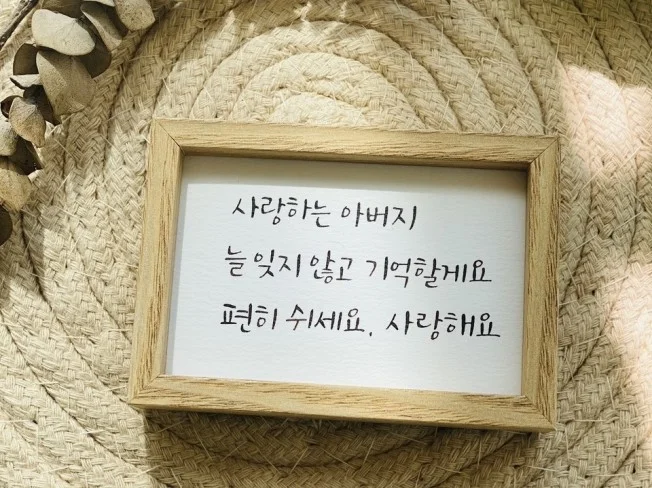 사랑하는 아버지
늘 잊지 않고 기억할게요
편히 쉬세요. 사랑해요